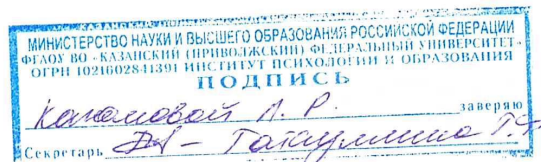 МИНИСТЕРСТВО НАУКИ И ВЫСШЕГО ОБРАЗОВАНИЯ РОССИЙСКОЙ ФЕДЕРАЦИИ
ФГАОУ ВО «КАЗАНСКИЙ (ПРИВОЛЖСКИЙ) ФЕДЕРАЛЬНЫЙ УНИВЕРСИТЕТ»
ОГРН 1021602841391 ИНСТИТУТ ПСИХОЛОГИИ И ОБРАЗОВАНИЯ
ПОДПИСЬ
А. Р. заверяю
Секретарь